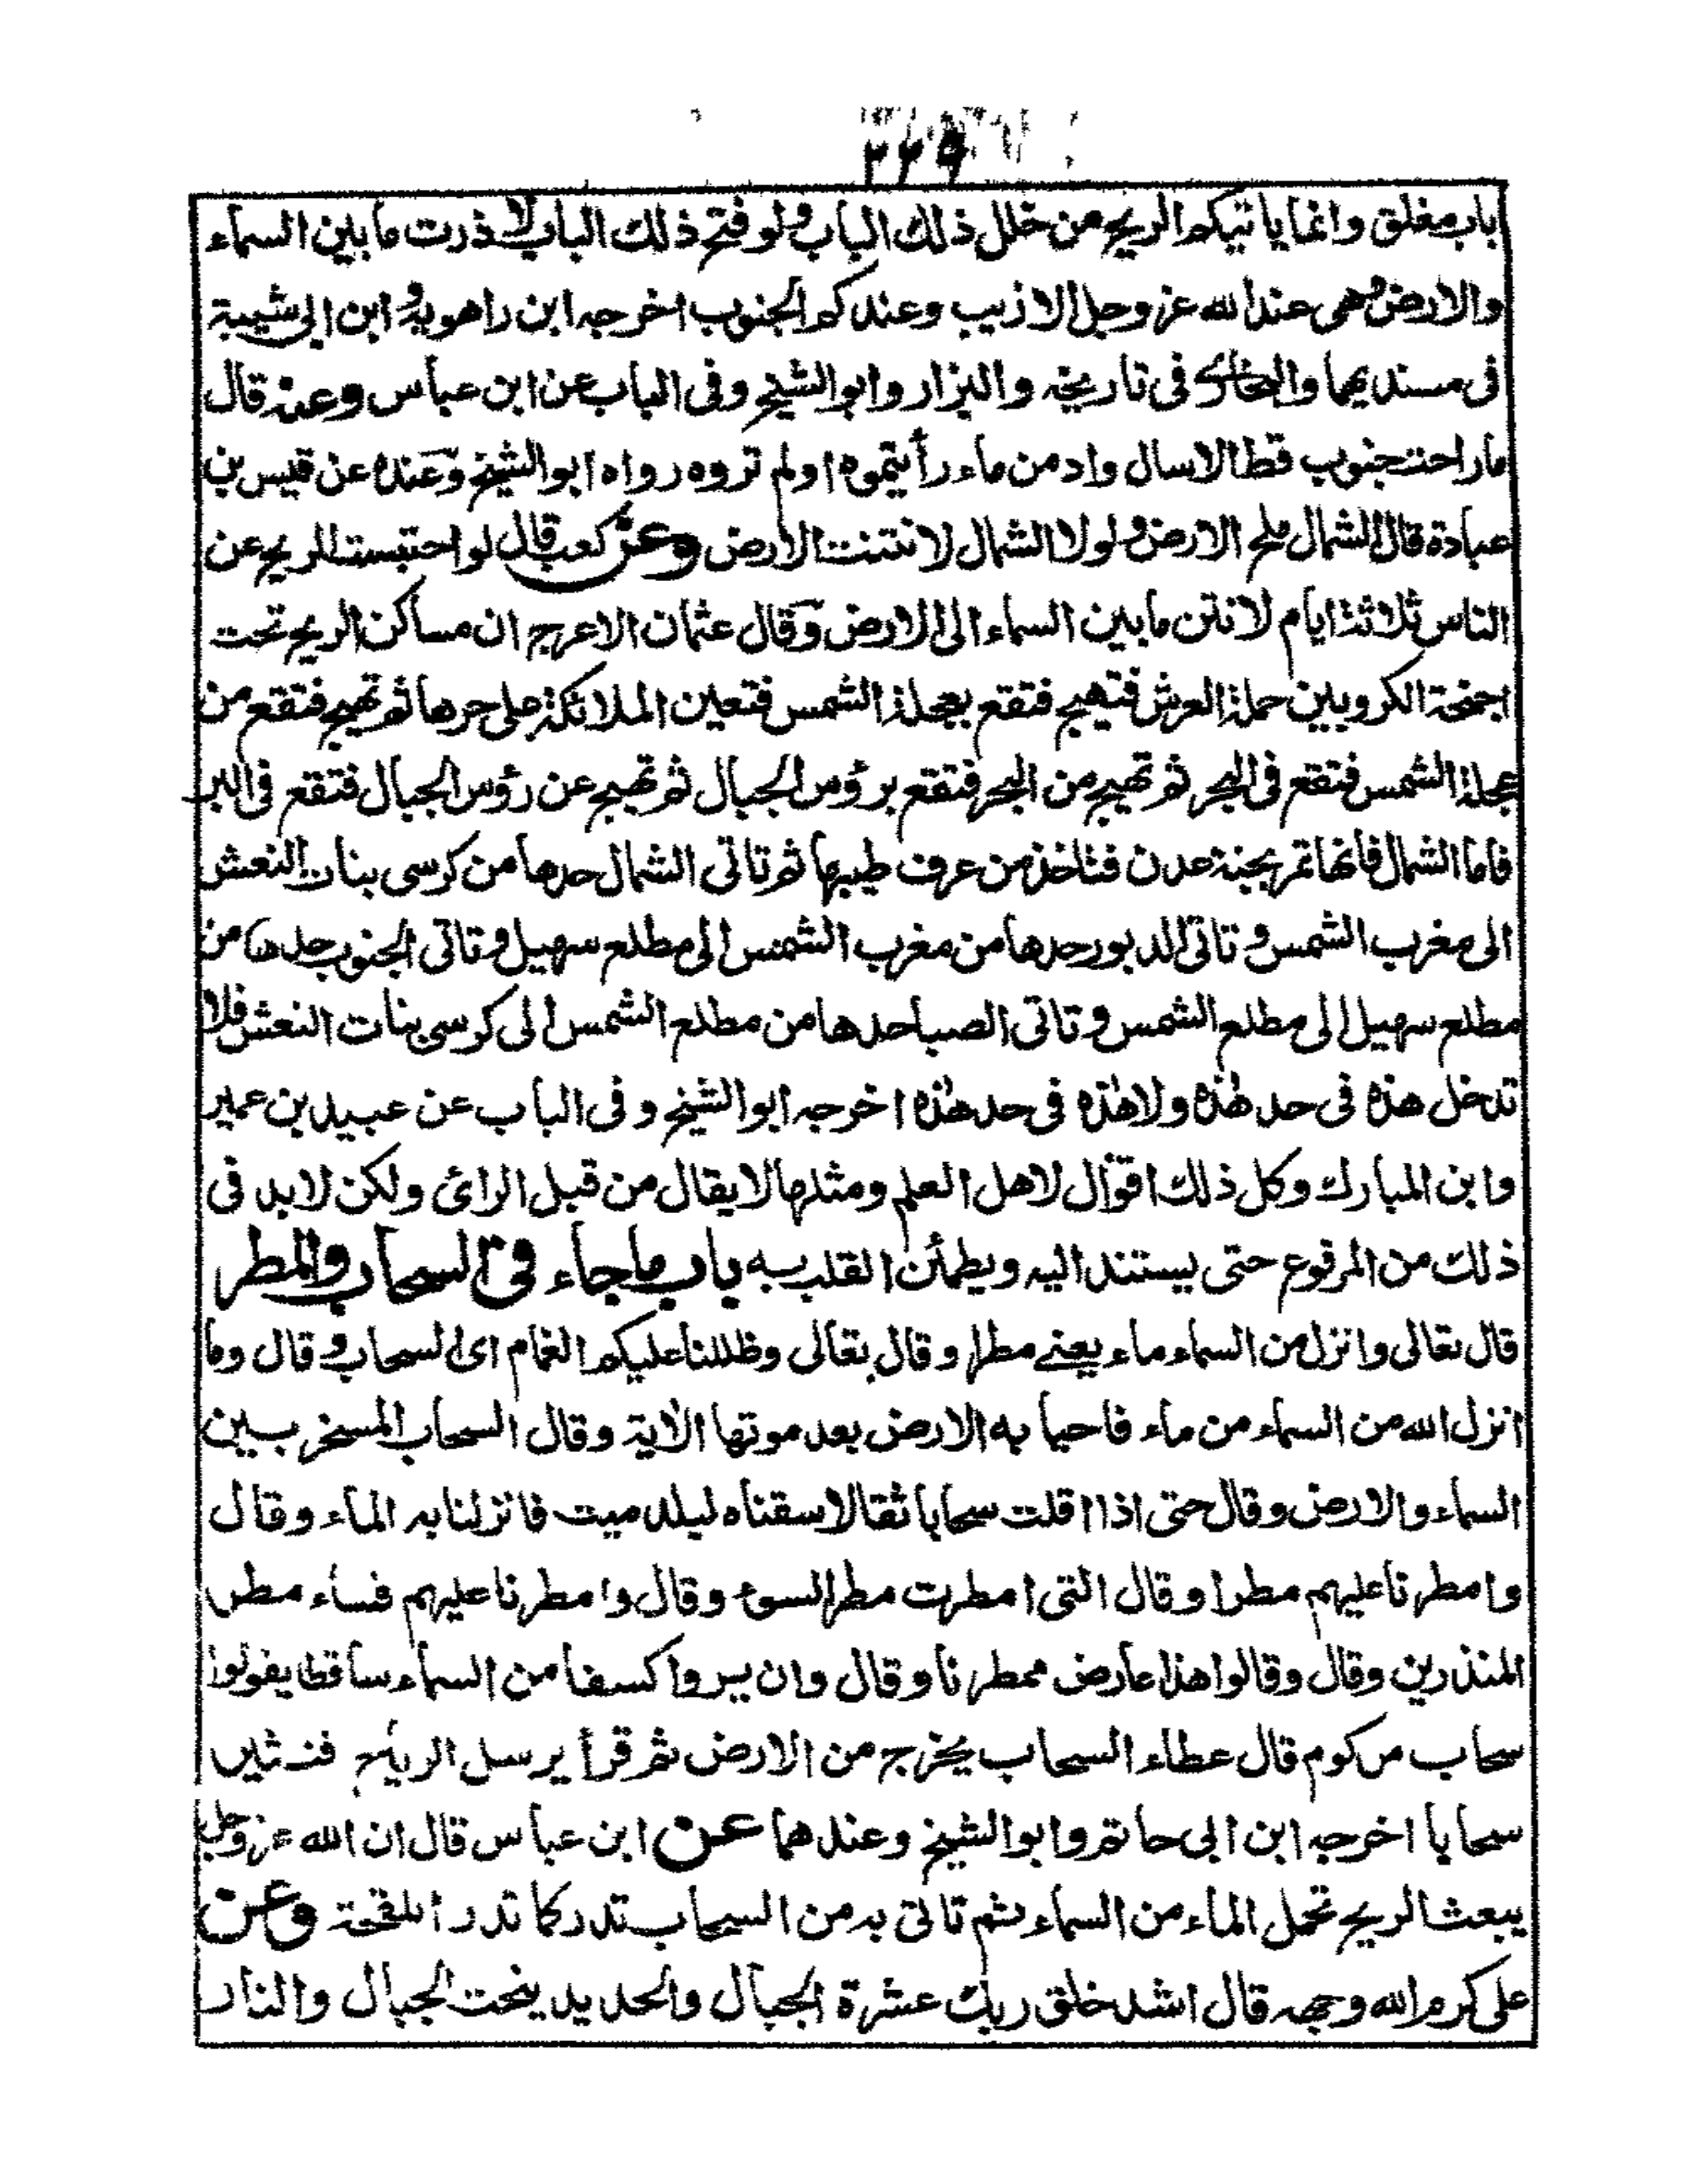 باب مغلق وانما ياتيكم الريح من خلل ذلك الباب ولو فتح ذلك الباب لاذرت ما بين السماء
والارض وهى عند الله عز وجل الازيب وعندكم الجنوب اخرجه ابن راهويه و ابن ابى شيبة
فى مسنديهما والبخارى فى تاريخه والبزار وابو الشيخ وفى الباب عن ابن عباس وعنه قال
ما راحت جنوب قط الا سال واد من ماء رأيتموه او لم تروه رواه ابو الشيخ وعنده عن قيس بن
عبادة قال الشمال ملح الارض ولولا الشمال لانتنت الارض وعن كعب قال لو احتبست الريح عن
الناس ثلاثة ايام لانتن ما بين السماء الى الارض وقال عثمان الاعرج ان مساكن الريح تحت
اجنحة الكروبين حملة العرش فتهيج فتقع بعجلة الشمس فتعين الملائكة على جرها ثم تهيج فتقع من
عجلة الشمس فتقع فى البحر ثم تهيج من البحر فتقع برؤس الجبال ثم تهيج عن رؤس الجبال فتقع فى البر
فاما الشمال فانها تمر بجنة عدن فتاخذ من عرف طيبها ثم تاتى الشمال حدها من كرسى بنات النعش
الى مغرب الشمس و تاتى الدبور حدها من مغرب الشمس الى مطلع سهيل وتاتى الجنوب حدها من
مطلع سهيل الى مطلع الشمس و تاتى الصبا حدها من مطلع الشمس الى كرسى بنات النعش فلا
تدخل هذه فى حد هذه ولا هذه فى حد هذه اخرجه ابو الشيخ و فى الباب عن عبيد بن عمير
وابن المبارك وكل ذلك اقوال لاهل العلم ومثلها لا يقال من قبل الرائ ولكن لا بد فى
ذلك من المرفوع حتى يستند اليه ويطمئن القلب به باب ما جاء فى السحاب والمطر
قال تعالى وانزل من السماء ماء يعنے مطرا وقال تعالى وظللنا عليكم الغمام اى السحاب و قال وما
انزل الله من السماء من ماء فاحيا به الارض بعد موتها الاية وقال السحاب المسخر بين
السماء والارض وقال حتى اذا اقلت سحابا ثقالا سقناه لبلد ميت فانزلنا به الماء وقال
وامطرنا عليهم مطرا وقال التى امطرت مطر السوء وقال وامطرنا عليهم فساء مطر
المنذرين وقال وقالوا هذا عارض ممطرنا وقال وان يروا كسفا من السماء ساقطا يقولوا
سحاب مركوم قال عطاء السحاب يخرج من الارض ثم قرأ يرسل الرياح فتثير
سحابا اخرجه ابن ابى حاتم وابو الشيخ وعندهما عن ابن عباس قال ان الله عز وجل
يبعث الريح تحمل الماء من السماء ثم تاتى به من السحاب تدر كما تدر اللقحة وعن
على كرم الله وجهه قال اشد خلق ربك عشرة الجبال والحديد ينحت الجبال والنار